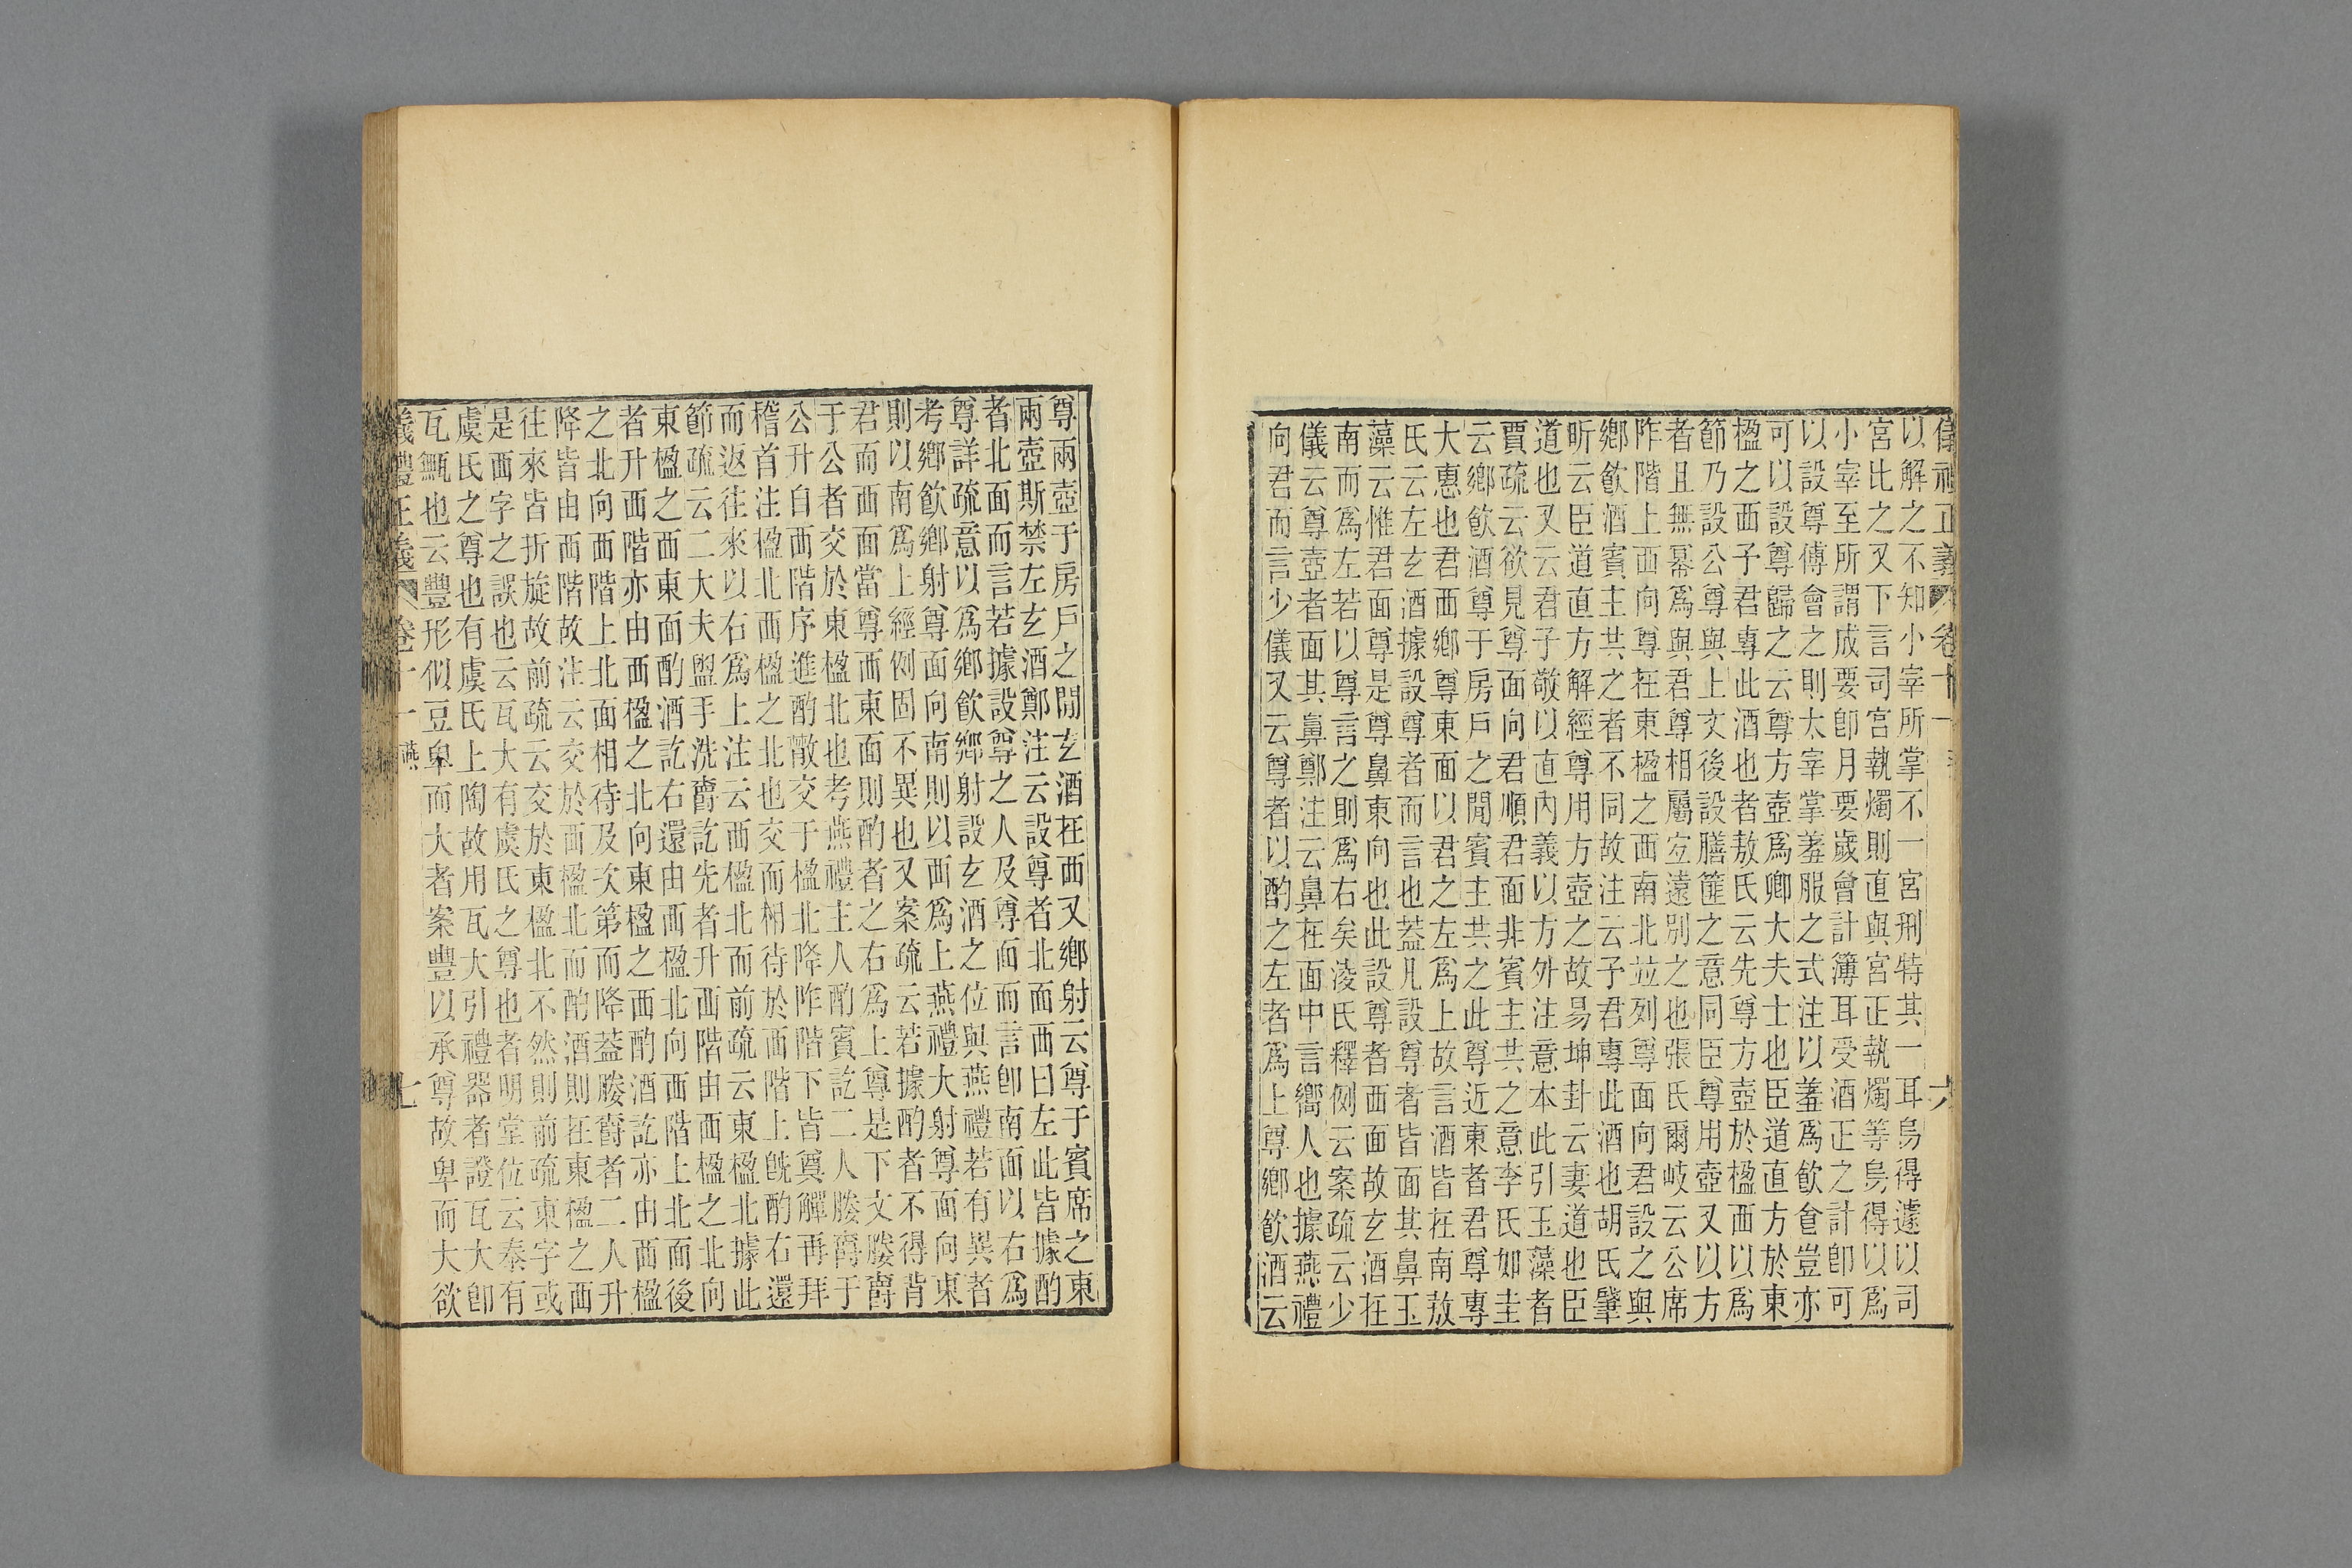 儀禮正義 卷十一 六
以解之不知小宰所掌不一宮刑特其一耳烏得遽以司
宮比之又下言司宮執燭則直與宮正執燭等烏得以爲
小宰至所謂成要卽月要歲會計簿耳受酒正之計卽可
以設尊傅會之則太宰掌羞服之式注以羞爲飮食豈亦
可以設尊歸之云尊方壺爲卿大夫士也臣道直方於東
楹之西子君專此酒也者敖氏云先尊方壺於楹西以爲
節乃設公尊與上文後設膳篚之意同臣尊用壺又以方
者且無冪爲與君尊相屬宐遠別之也張氏爾岐云公席
阼階上西向尊在東楹之西南北並列尊面向君設之與
鄉飮酒賓主共之者不同故注云予君專此酒也胡氏肇
昕云臣道直方解經尊用方壺之故易坤卦云妻道也臣
道也又云君子敬以直內義以方外注意本此引玉藻者
賈疏云欲見尊面向君順君面非賓主共之意李氏如圭
云鄉飮酒尊于房戶之閒賓主共之此尊近東者君尊專
大惠也君西鄉尊東面以君之左爲上故言酒皆在南敖
氏云左玄酒據設尊者而言也葢凡設尊者皆面其鼻玉
藻云惟君面尊是尊鼻東向也此設尊者西面故玄酒在
南而爲左若以尊言之則爲右矣淩氏釋例云案疏云少
儀云尊壺者面其鼻鄭注云鼻在面中言嚮人也據燕禮
向君而言少儀又云尊者以酌之左者爲上尊鄉飮酒云
尊兩壺于房戶之閒玄酒在西又鄉射云尊于賓席之東
兩壺斯禁左玄酒鄭注云設尊者北面西曰左此皆據酌
者北面而言若據設尊之人及尊面而言卽南面以右爲
尊詳疏意以爲鄉飮鄉射設玄酒之位與燕禮若有異者
考鄉飮鄉射尊面向南則以西爲上燕禮大射尊面向東
則以南爲上經例固不異也又案疏云若據酌者不得背
君而西面當尊西東面則酌者之右爲上尊是下文媵爵
于公者交於東楹北也考燕禮主人酌賓訖二人媵爵于
公升自西階序進酌散交于楹北降阼階下皆奠觶再拜
稽首注楹北西楹之北也交而相待於西階上旣酌右還
而返往來以右爲上注云西楹北而前疏云東楹北據此
節疏云二大夫盥手洗爵訖先者升西階由西楹之北向
東楹之西東面酌酒訖右還由西楹北向西階上北面後
者升西階亦由西楹之北向東楹之西酌酒訖亦由西楹
之北向西階上北面相待及次第而降葢媵爵者二人升
降皆由西階故注云交於西楹北而酌酒則在東楹之西
往來皆折旋故前疏云交於東楹北不然則前疏東字或
是西字之誤也云瓦大有虞氏之尊也者明堂位云泰有
虞氏之尊也有虞氏上陶故用瓦大引禮器者證瓦大卽
瓦甒也云豐形似豆卑而大者案豐以承尊故卑而大欲
儀禮正義 卷十一 燕 七